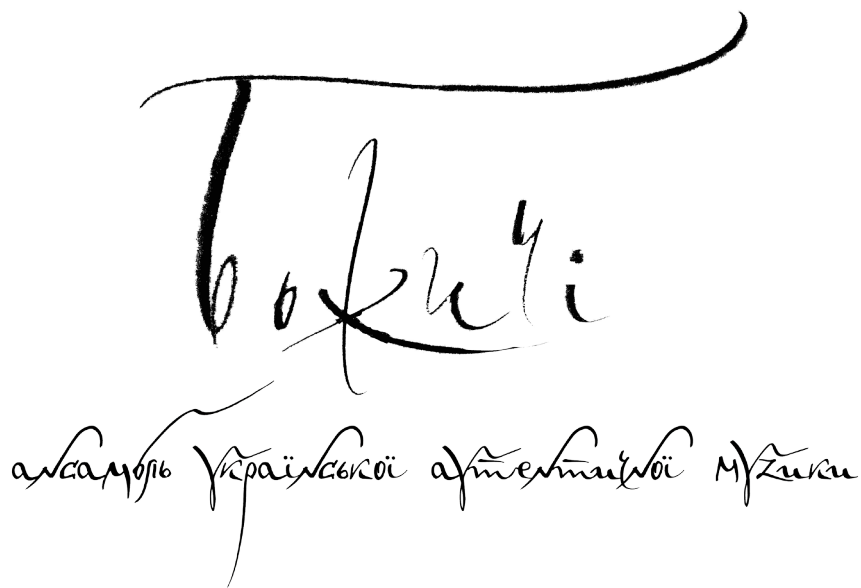 Божичі
ансамбль української аутентичної музики